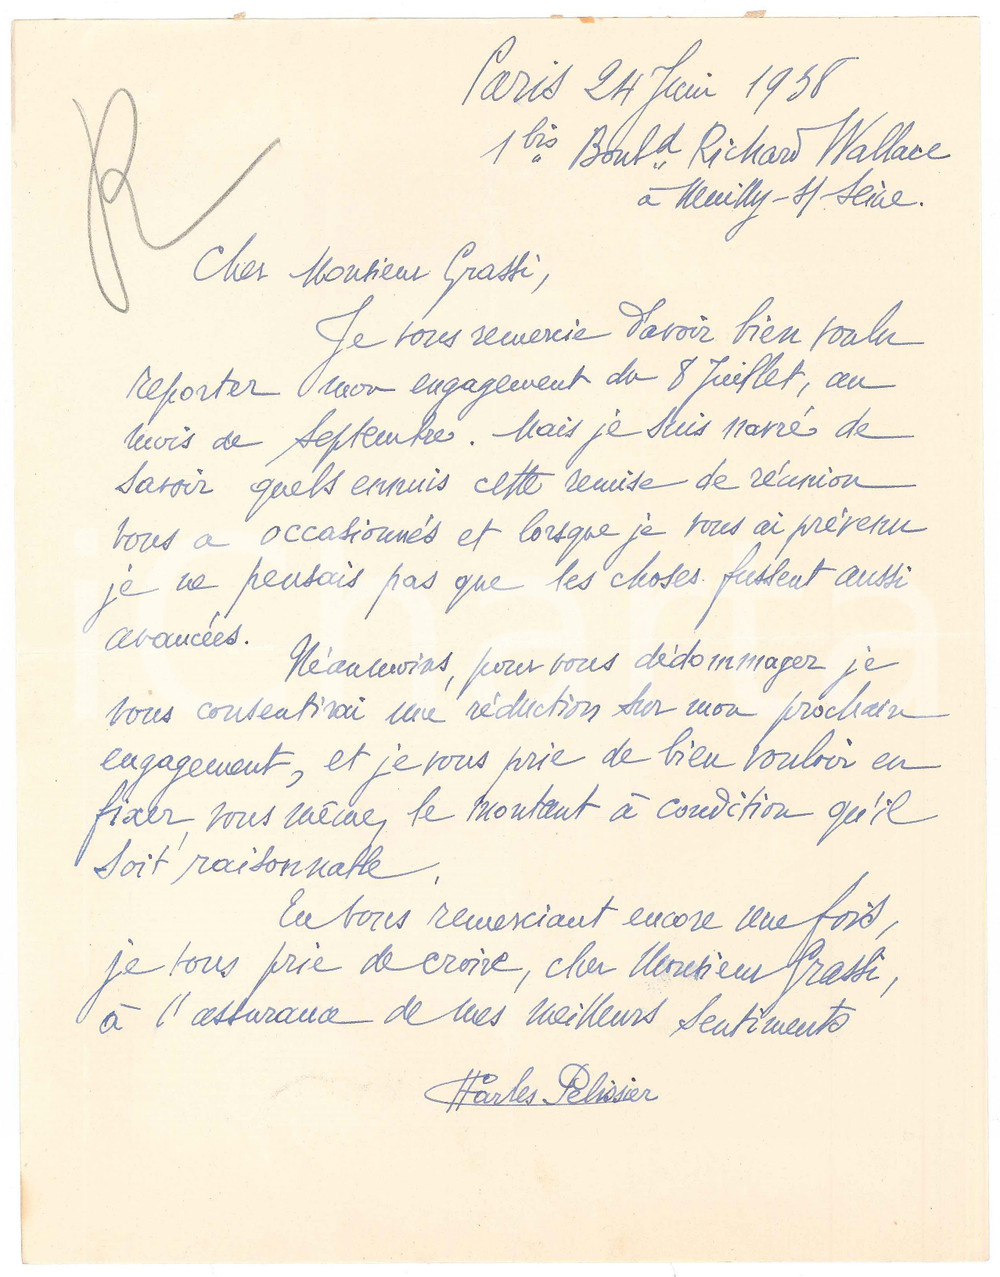 R
Paris 24 Juin 1938
1 bis Boul.d Richard Wallace
à Neuilly-s/ Seine.
Cher Monsieur Grassi,
Je vous remercie d'avoir bien voulu
reporter mon engagement du 8 Juillet, au
mois de Septembre. Mais je suis navré de
savoir quels ennuis cette remise de réunion
vous a occasionnés et lorsque je vous ai prévenu
je ne pensais pas que les choses fussent aussi
avancées.
Néanmoins, pour vous dédommager je
vous consentirai une réduction sur mon prochain
engagement, et je vous prie de bien vouloir en
fixer, vous même, le montant à condition qu'il
soit raisonnable.
En vous remerciant encore une fois,
je vous prie de croire, cher Monsieur Grassi,
à l'assurance de mes meilleurs sentiments
Charles Pelissier